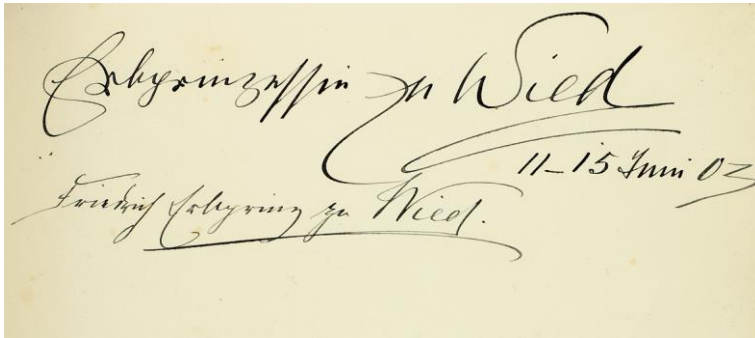 Erbprinzessin zu Wied
11–15 Juni 03
Friedrich Erbprinz zu Wied.